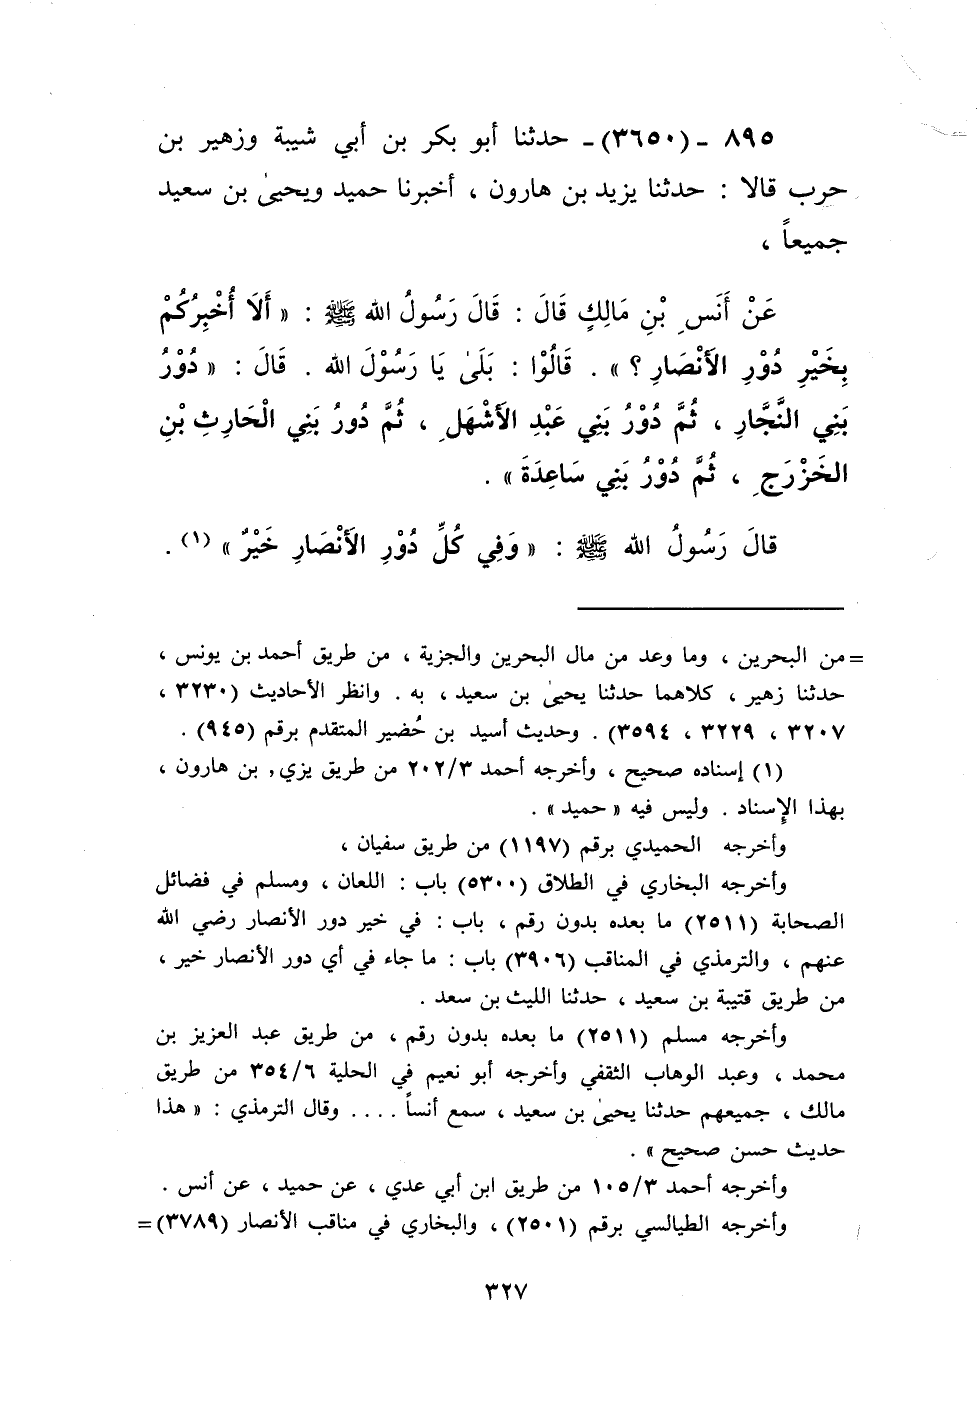 ٨٩٥ ـ (٣٦٥٠) ـ حدثنا أبو بكر بن أبي شيبة وزهير بن
حرب قالا : حدثنا يزيد بن هارون ، أخبرنا حميد ويحيىٰ بن سعيد
جميعاً ،
عَنْ أَنَسِ بْنِ مَالِكٍ قَالَ : قَالَ رَسُولُ الله ﷺ : « أَلَا أُخْبِرُكُمْ
بِخَيْرِ دُوْرِ الأَنْصَارِ ؟ » . قَالُوْا : بَلَىٰ يَا رَسُوْلَ الله . قَالَ : « دُوْرُ
بَنِي النَّجَّارِ ، ثُمَّ دُوْرُ بَنِي عَبْدِ الأَشْهَلِ ، ثُمَّ دُورُ بَنِي الْحَارِثِ بْنِ
الخَزْرَجِ ، ثُمَّ دُوْرُ بَنِي سَاعِدَةَ » .
قالَ رَسُولُ الله ﷺ : « وَفِي كُلِّ دُوْرِ الأَنْصَارِ خَيْرٌ » (١) .
= من البحرين ، وما وعد من مال البحرين والجزية ، من طريق أحمد بن يونس ،
حدثنا زهير ، كلاهما حدثنا يحيىٰ بن سعيد ، به . وانظر الأحاديث (٣٢٣٠ ،
٣٢٠٧ ، ٣٢٢٩ ، ٣٥٩٤) . وحديث أسيد بن حُضير المتقدم برقم (٩٤٥) .
(١) إسناده صحيح ، وأخرجه أحمد ٢٠٢/٣ من طريق يزي, بن هارون ،
بهذا الإِسناد . وليس فيه « حميد » .
وأخرجه الحميدي برقم (١١٩٧) من طريق سفيان ،
وأخرجه البخاري في الطلاق (٥٣٠٠) باب : اللعان ، ومسلم في فضائل
الصحابة (٢٥١١) ما بعده بدون رقم ، باب : في خير دور الأنصار رضي الله
عنهم ، والترمذي في المناقب (٣٩٠٦) باب : ما جاء في أي دور الأنصار خير ،
من طريق قتيبة بن سعيد ، حدثنا الليث بن سعد .
وأخرجه مسلم (٢٥١١) ما بعده بدون رقم ، من طريق عبد العزيز بن
محمد ، وعبد الوهاب الثقفي وأخرجه أبو نعيم في الحلية ٣٥٤/٦ من طريق
مالك ، جميعهم حدثنا يحيىٰ بن سعيد ، سمع أنساً .... وقال الترمذي : « هذا
حديث حسن صحيح » .
وأخرجه أحمد ١٠٥/٣ من طريق ابن أبي عدي ، عن حميد ، عن أنس .
وأخرجه الطيالسي برقم (٢٥٠١) ، والبخاري في مناقب الأنصار (٣٧٨٩) =
٣٢٧